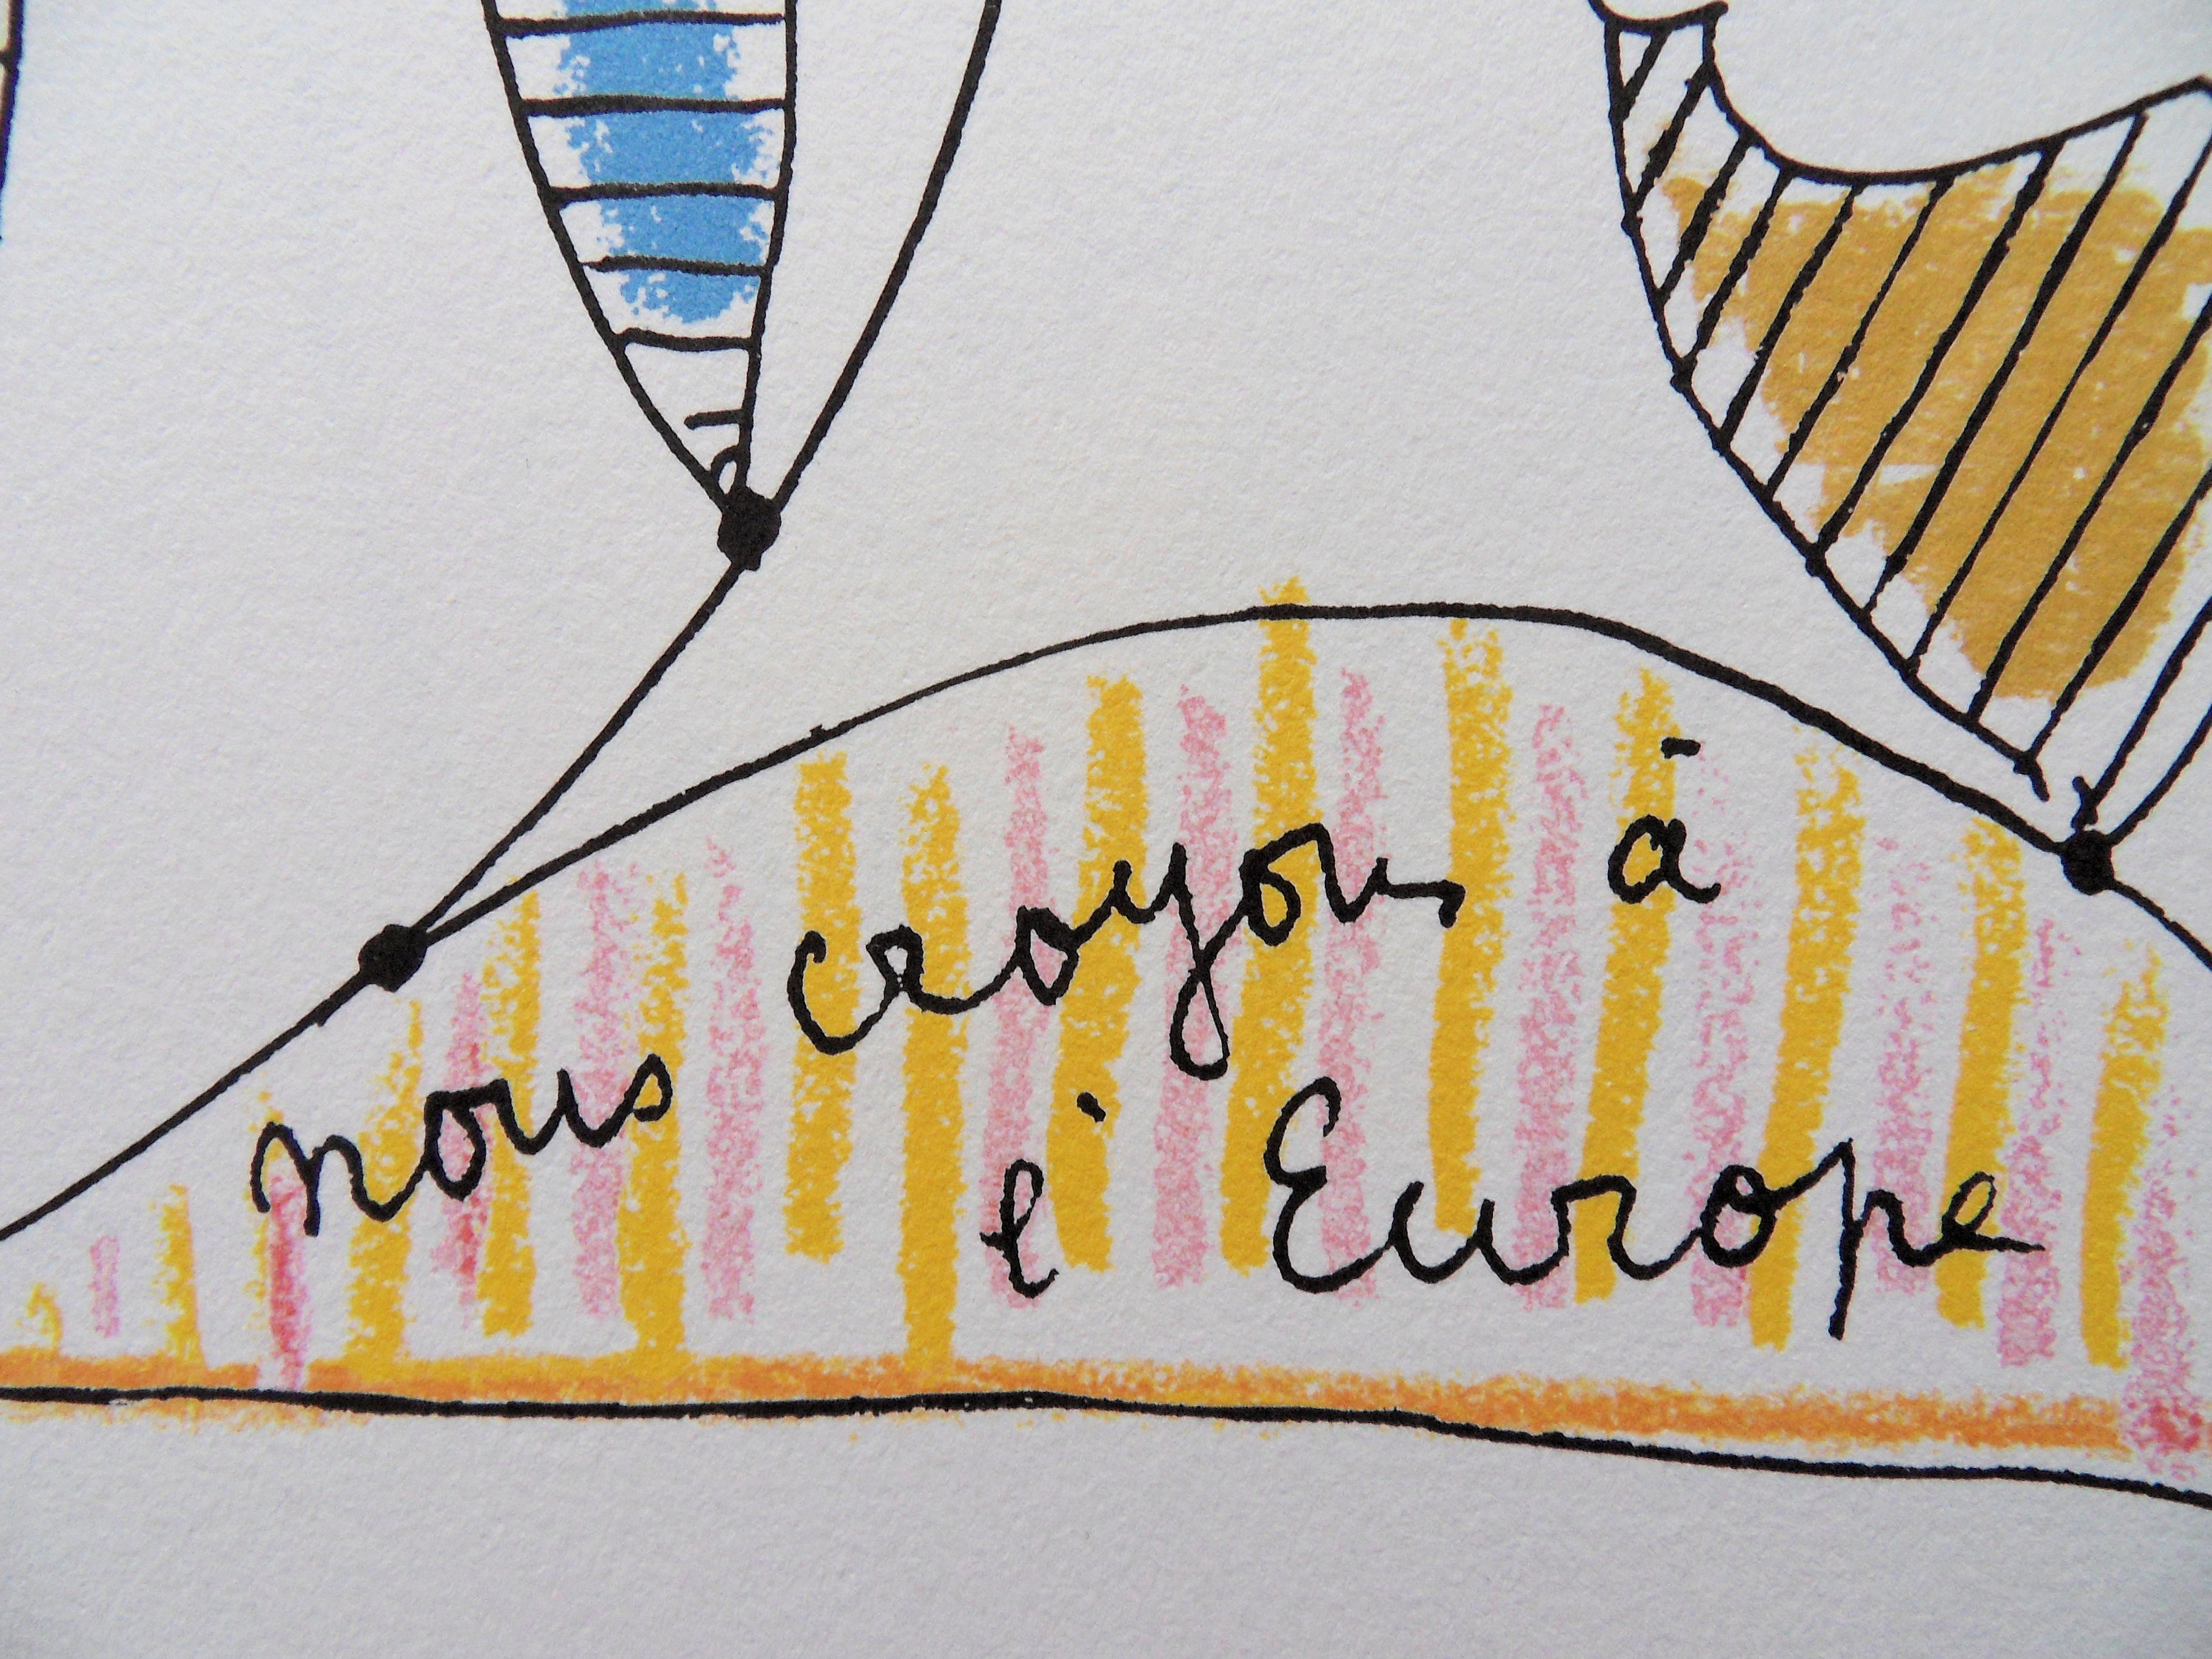 nous croyons à
l'Europe